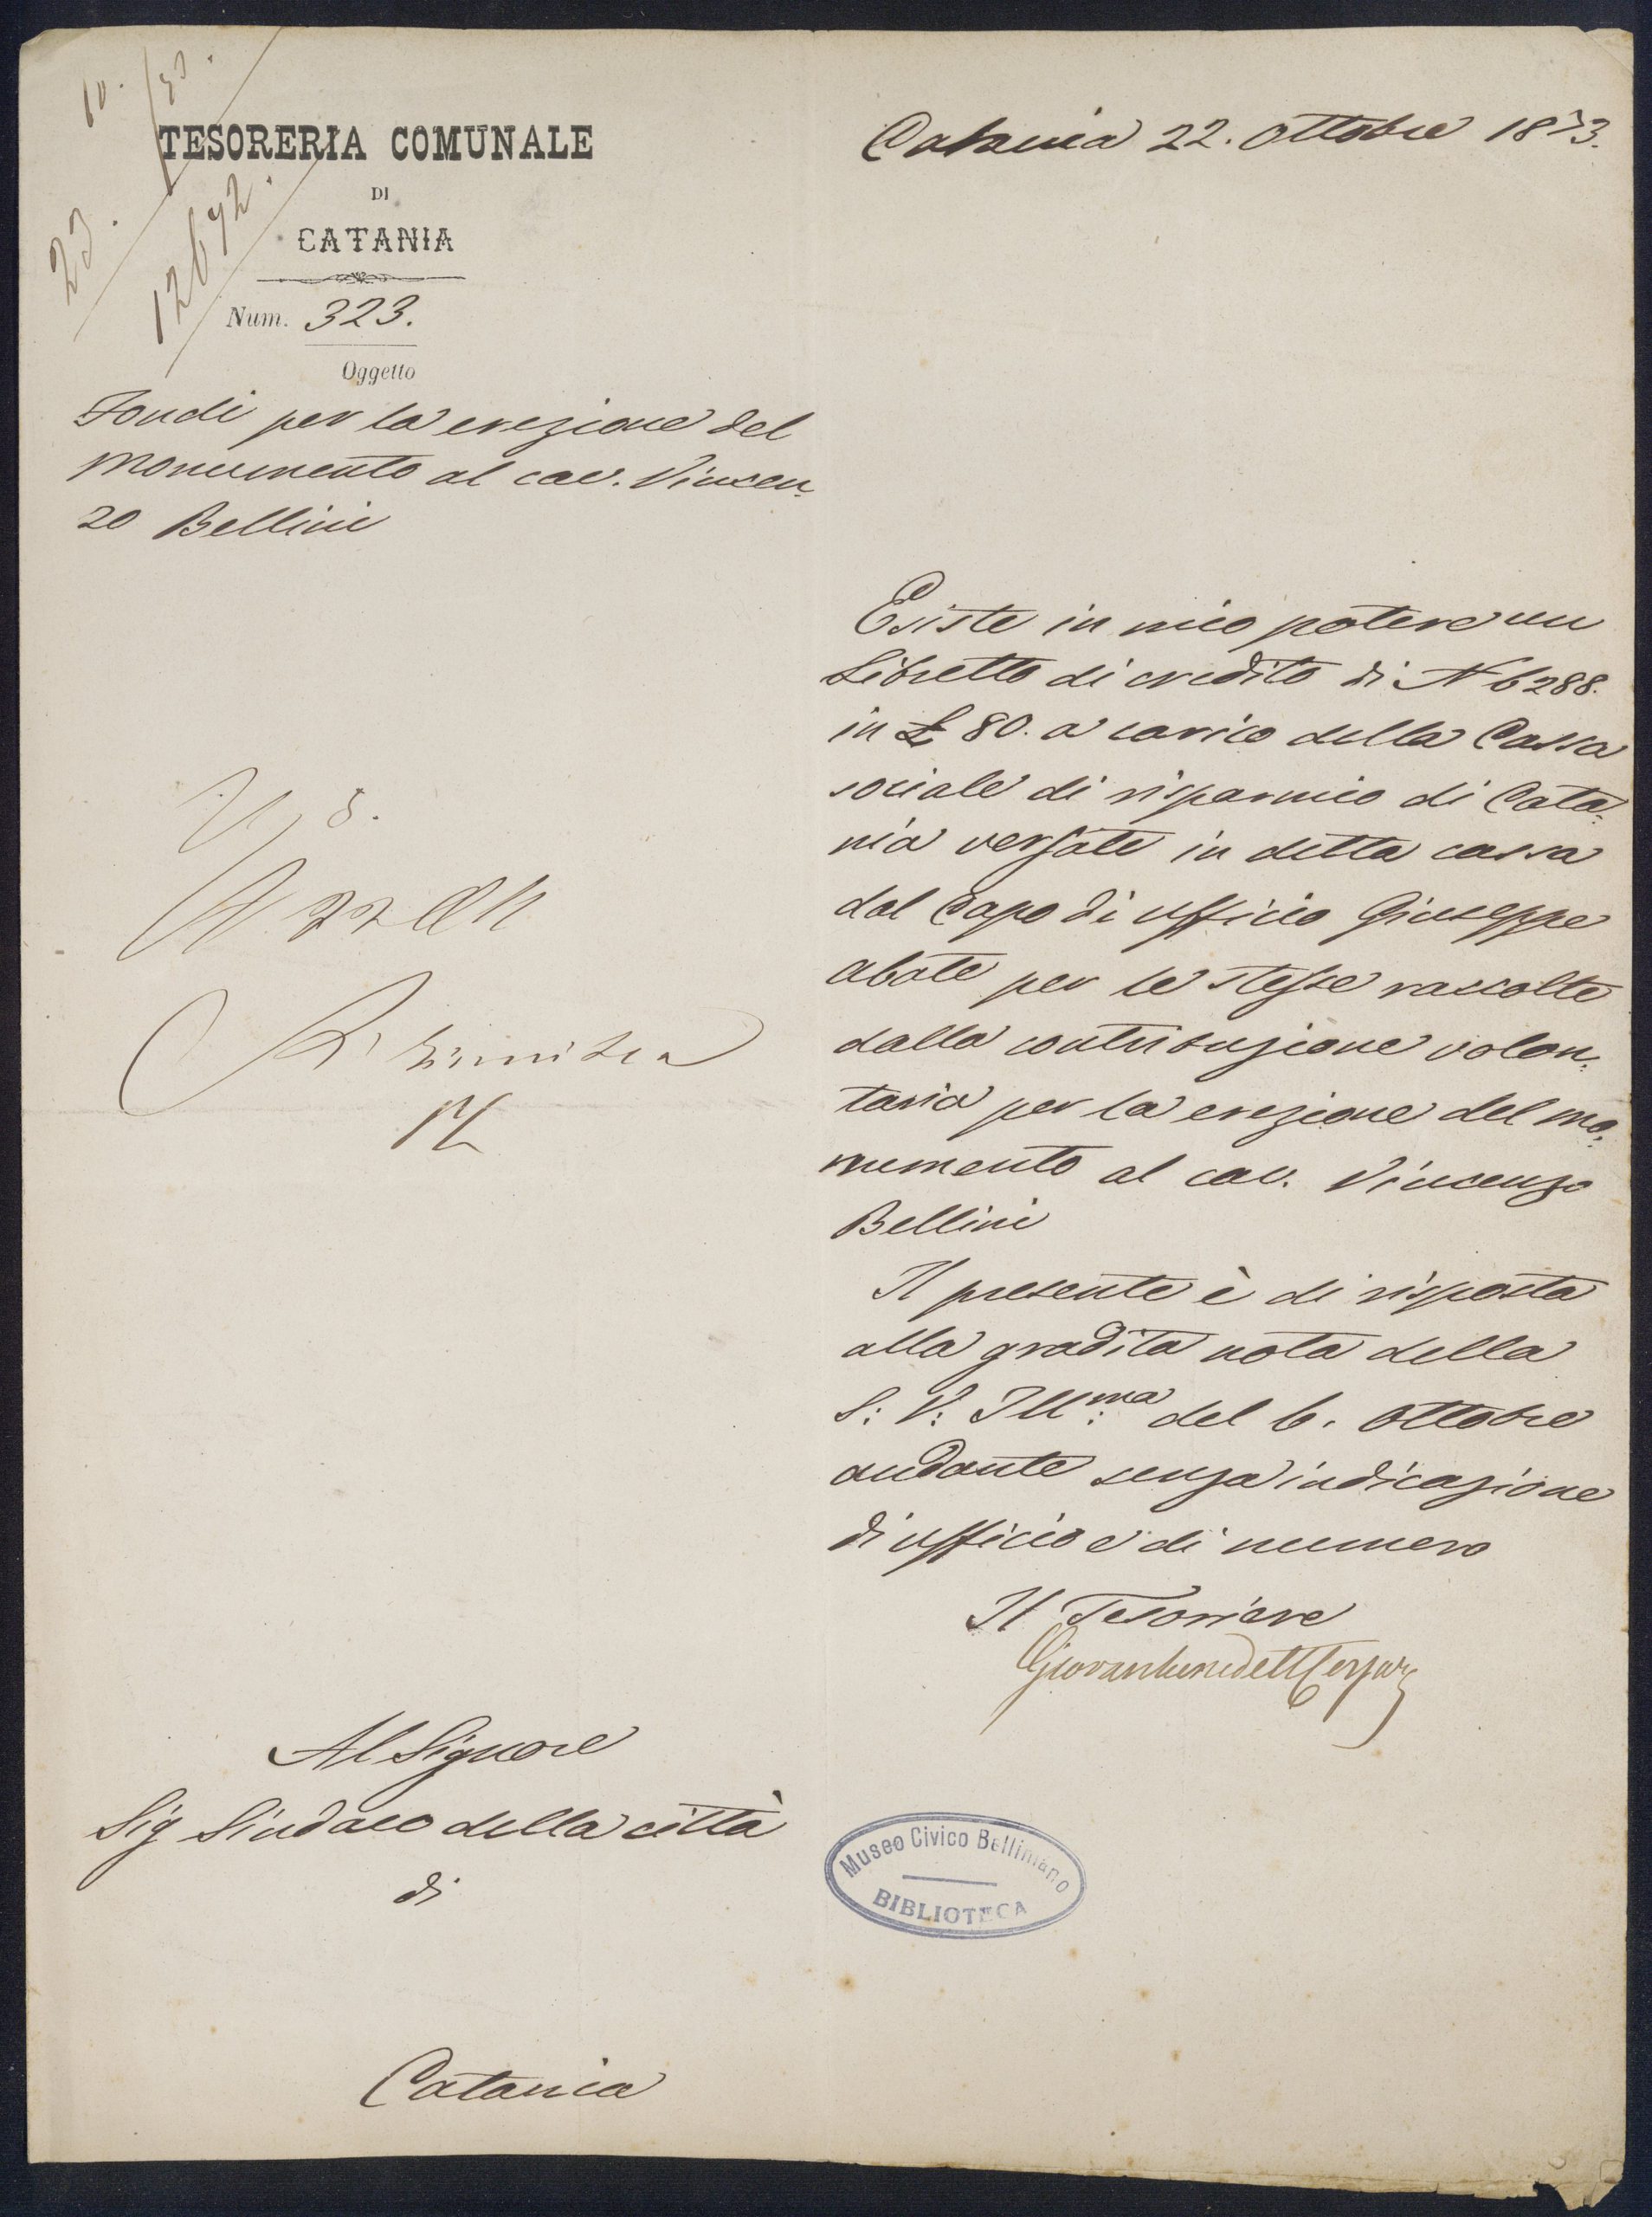 TESORERIA COMUNALE
DI
CATANIA
Num. 323.
Oggetto
Fondi per la erezione del
Monumento al cav. Vincen-
zo Bellini
23.
12692.
Catania 22. Ottobre 1873.
Esiste in mio potere un
Libretto di credito di N 6288.
in £ 80. a carico della Cassa
sociale di risparmio di Cata-
nia versate in detta cassa
dal Capo di ufficio Giuseppe
Abate per le stesse raccolte
dalla contribuzione volon-
taria per la erezione del mo-
numento al cav. Vincenzo
Bellini
Il presente è di risposta
alla gradita nota della
S: V: Ill:ma del 6. Ottobre
andante senza indicazione
di ufficio e di numero
Il Tesoriere
Al Signore
Sig Sindaco della città
di
Catania
Museo Civico Belliniano
BIBLIOTECA